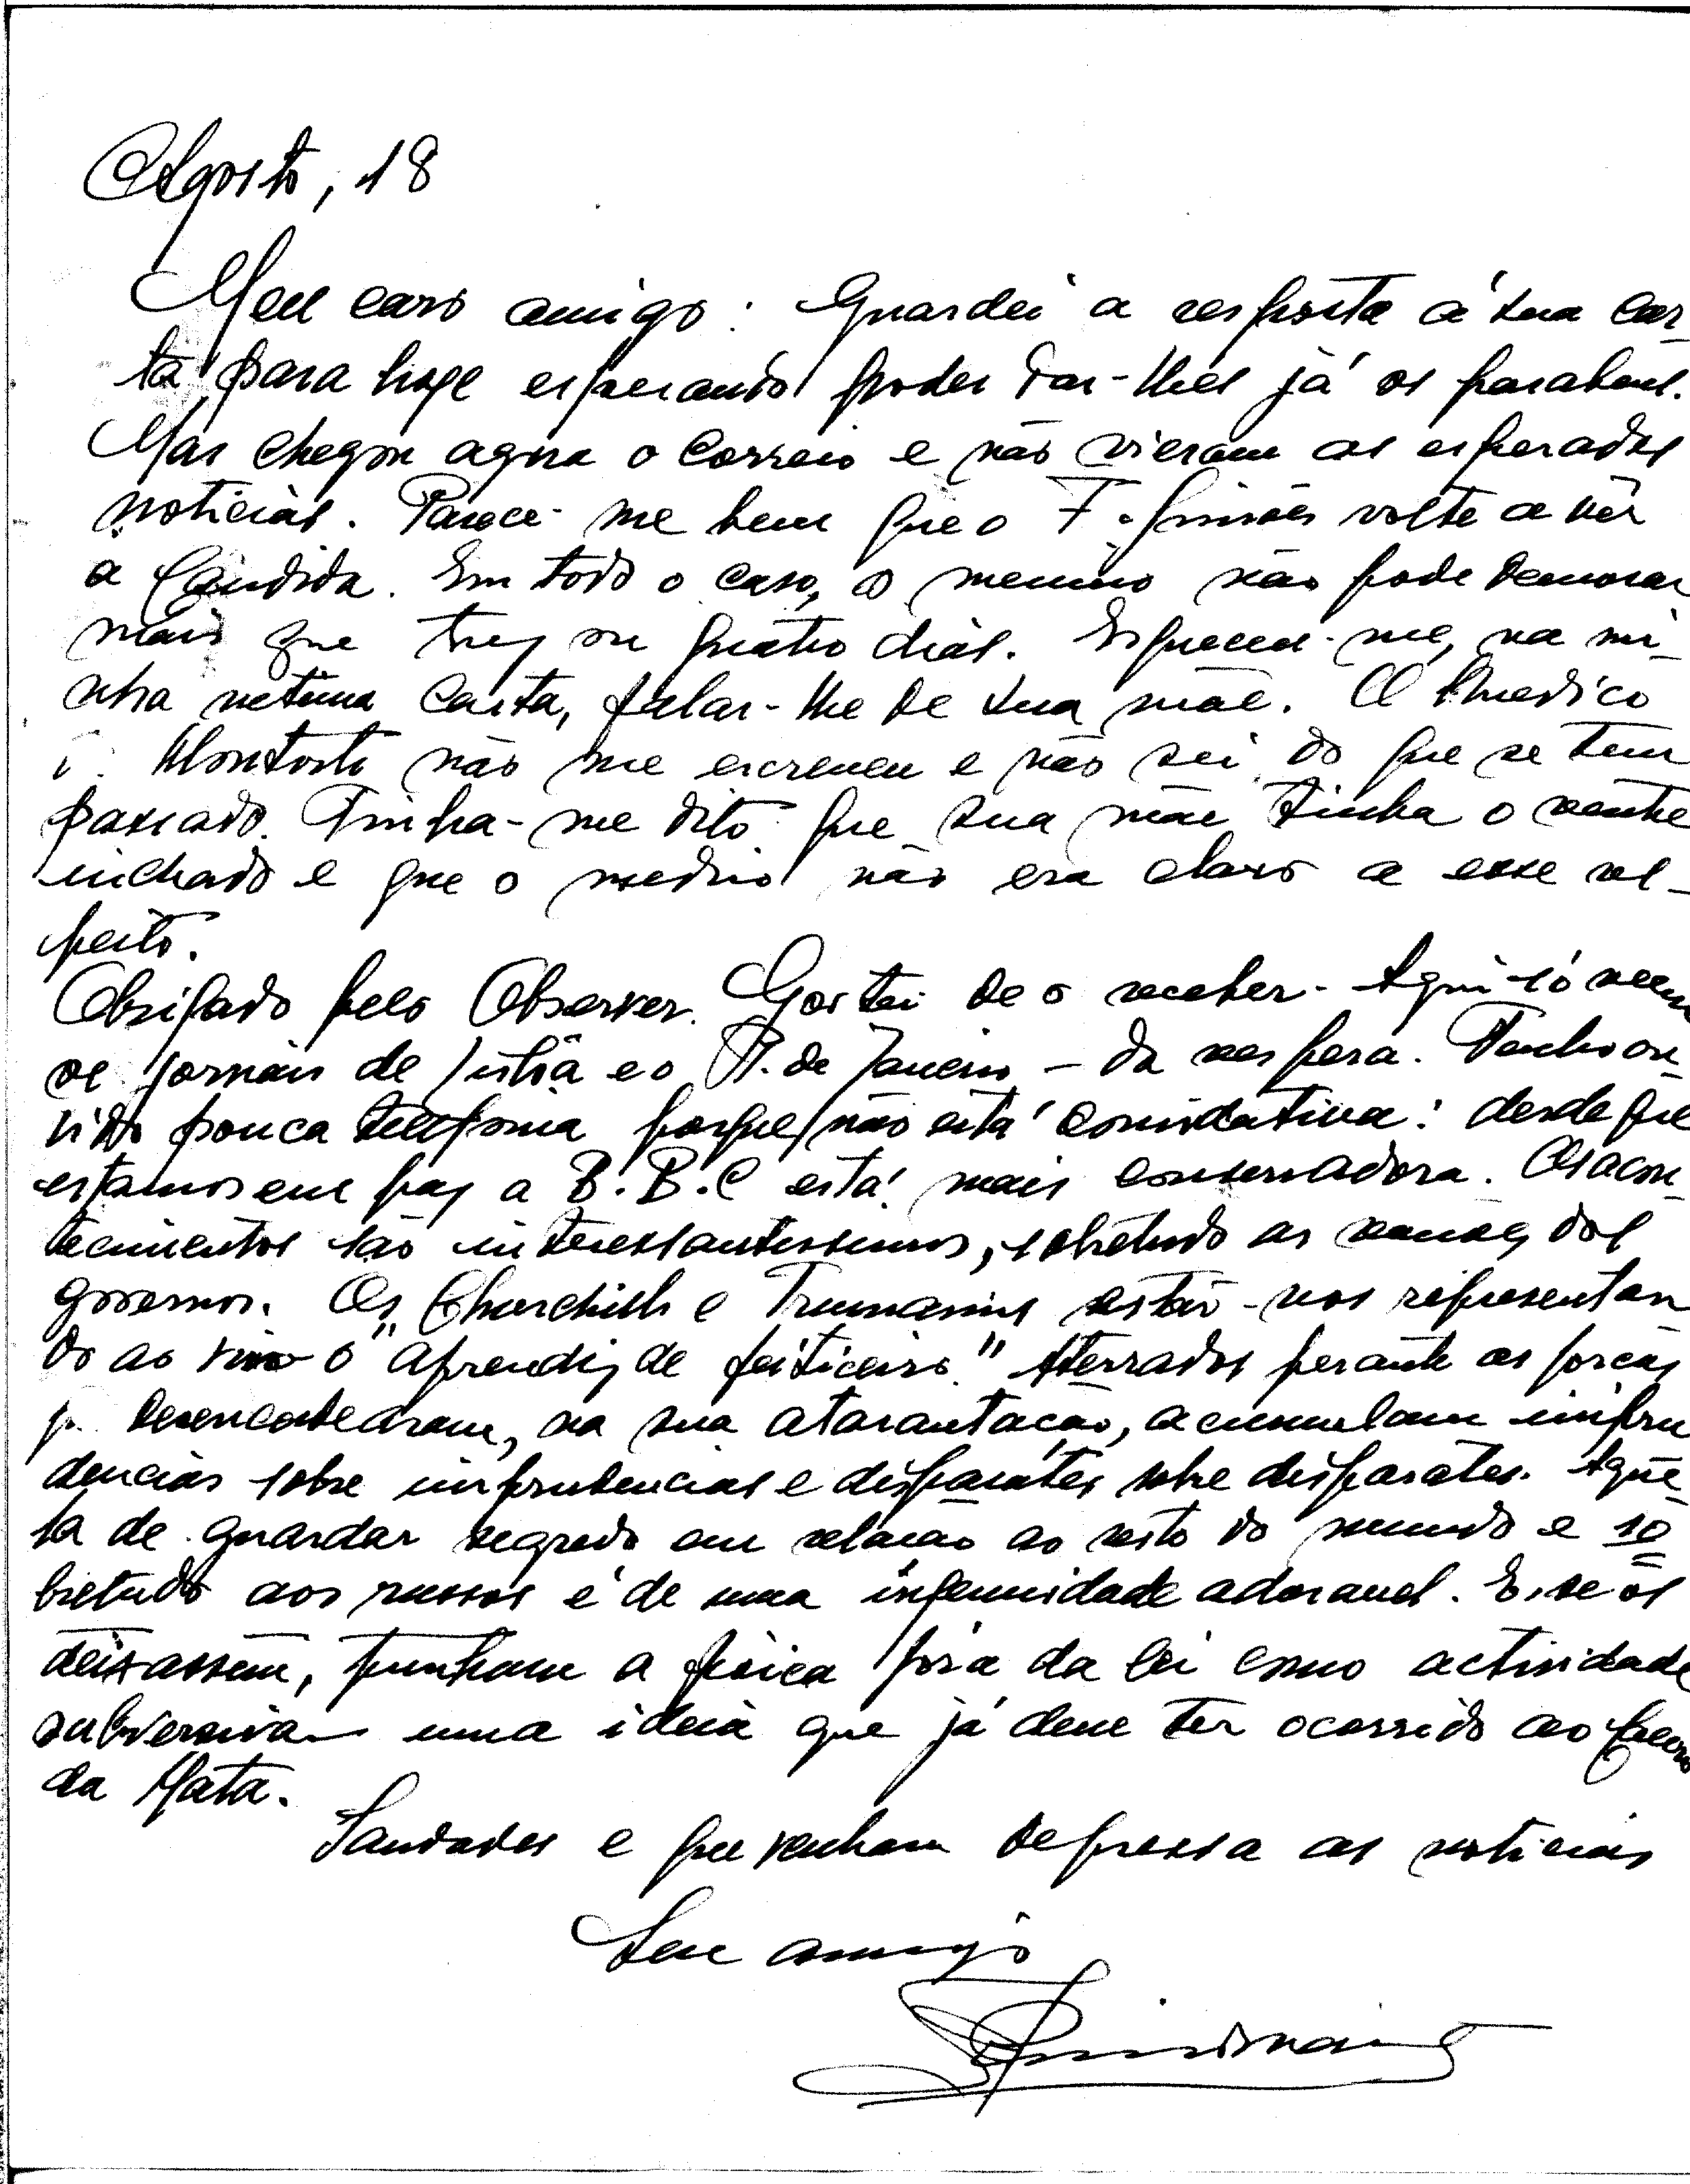 Agosto, 18
Meu caro amigo: Guardei a resposta á sua car-
ta para hoje esperando poder dar-lhes já os parabens.
Mas chegou agora o correio e não vieram as esperadas
noticias. Parece-me bem que o F. Simões volte a vêr
a Candida. Em todo o caso, o menino não pode demorar
mais que trez ou quatro dias. Esqueceu-me, na mi-
nha ultima carta, falar-lhe de sua mãe. O medico
Montorte não me escreveu e não sei do que se tem
passado. Tinha-me dito que sua mãe tinha o ventre
inchado e que o medico não era claro a esse res-
peito.
Obrigado pelo Observer. Gostei de o receber. Aqui só veem
os jornais de Lisbôa e o P. de Janeiro – da vespera. Tenho ou-
vido pouca telefonia porque não está convidativa: desde que
estamos em paz a B.B.C está mais conservadora. Os acon-
tecimentos são interessantissimos, sobretudo as dos
governos. Os Churchills e Trumanins estão-nos representan
do ao vivo o "aprendiz de feiticeiro." Aterrados perante as forças
q. desencadearam, na sua atarantação, acumulam impru
dencias sobre imprudencias e disparates sobre disparates. Aque-
la de guardar segredo em relação ao resto do mundo e so
bretudo aos russos é de uma ingenuidade adoravel. E, se os
deixassem, punham a fisica fóra da lei como actividade
subversiva – uma ideia que já deve ter ocorrido ao
da Mata.
Saudades e que venham depressa as noticias
Seu amigo